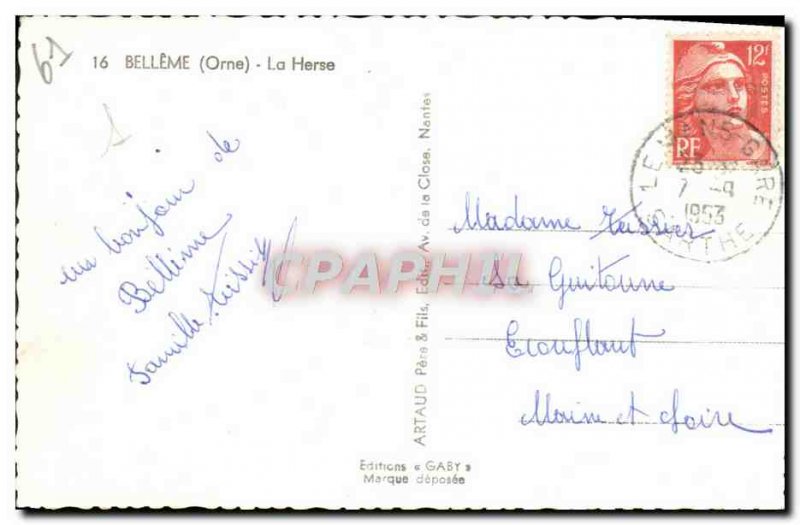 61
16 BELLÊME (Orne) - La Herse
un bonjour de
Bellême
Famille Teissier
CPAPHIL
ARTAUD Père & Fils, Edit., Av. de la Close, Nantes
Editions « GABY »
Marque déposée
12F
POSTES
RF
LE MANS-GARE
7 -9
1953
SARTHE
Madame Teissier
La Guitoune
Ecouflant
Maine et Loire